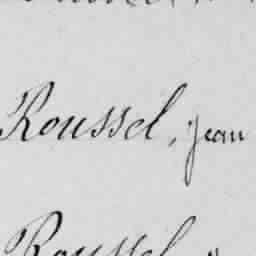 Roussel, Jean
Roussel